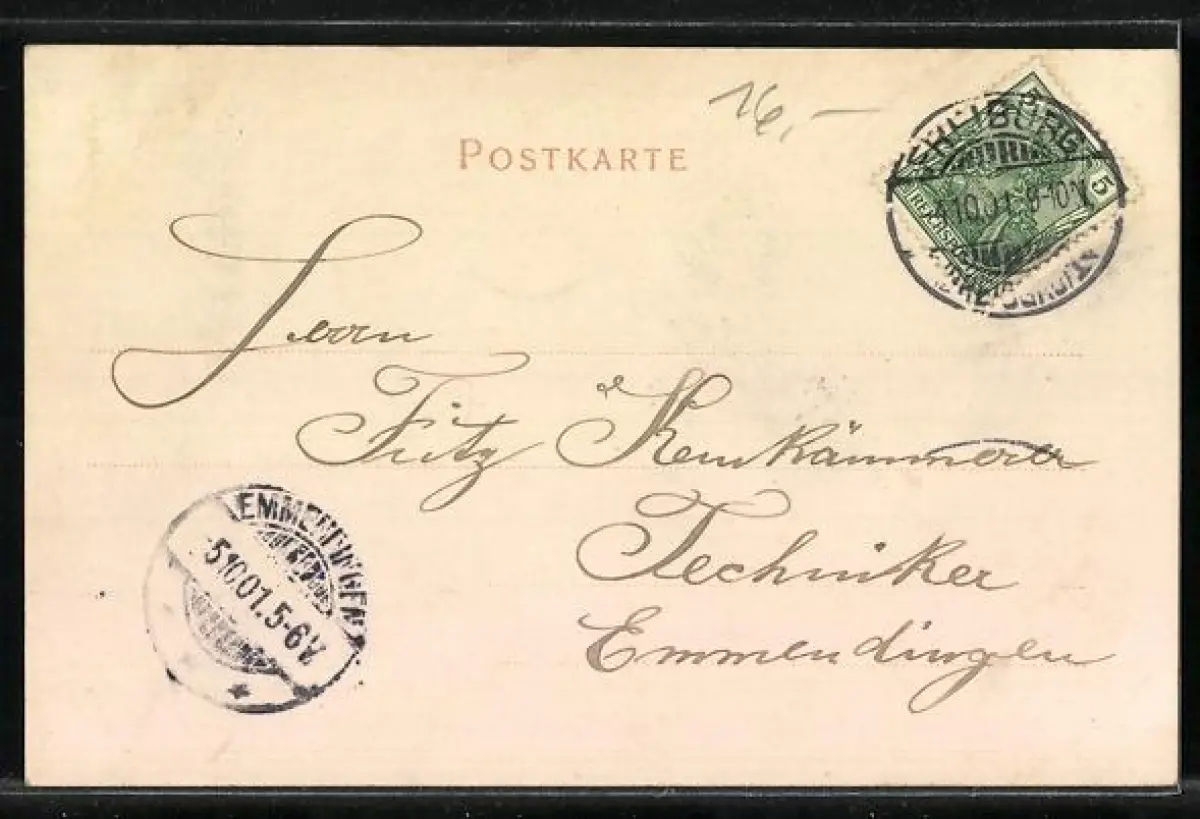 16,-
POSTKARTE
FREIBURG
5
REICHSPOST
10.01.9-10V
Herrn
Fritz Kernkämmerer
Techniker
Emmendingen
EMMENDINGEN
5.10.01.5-6V.